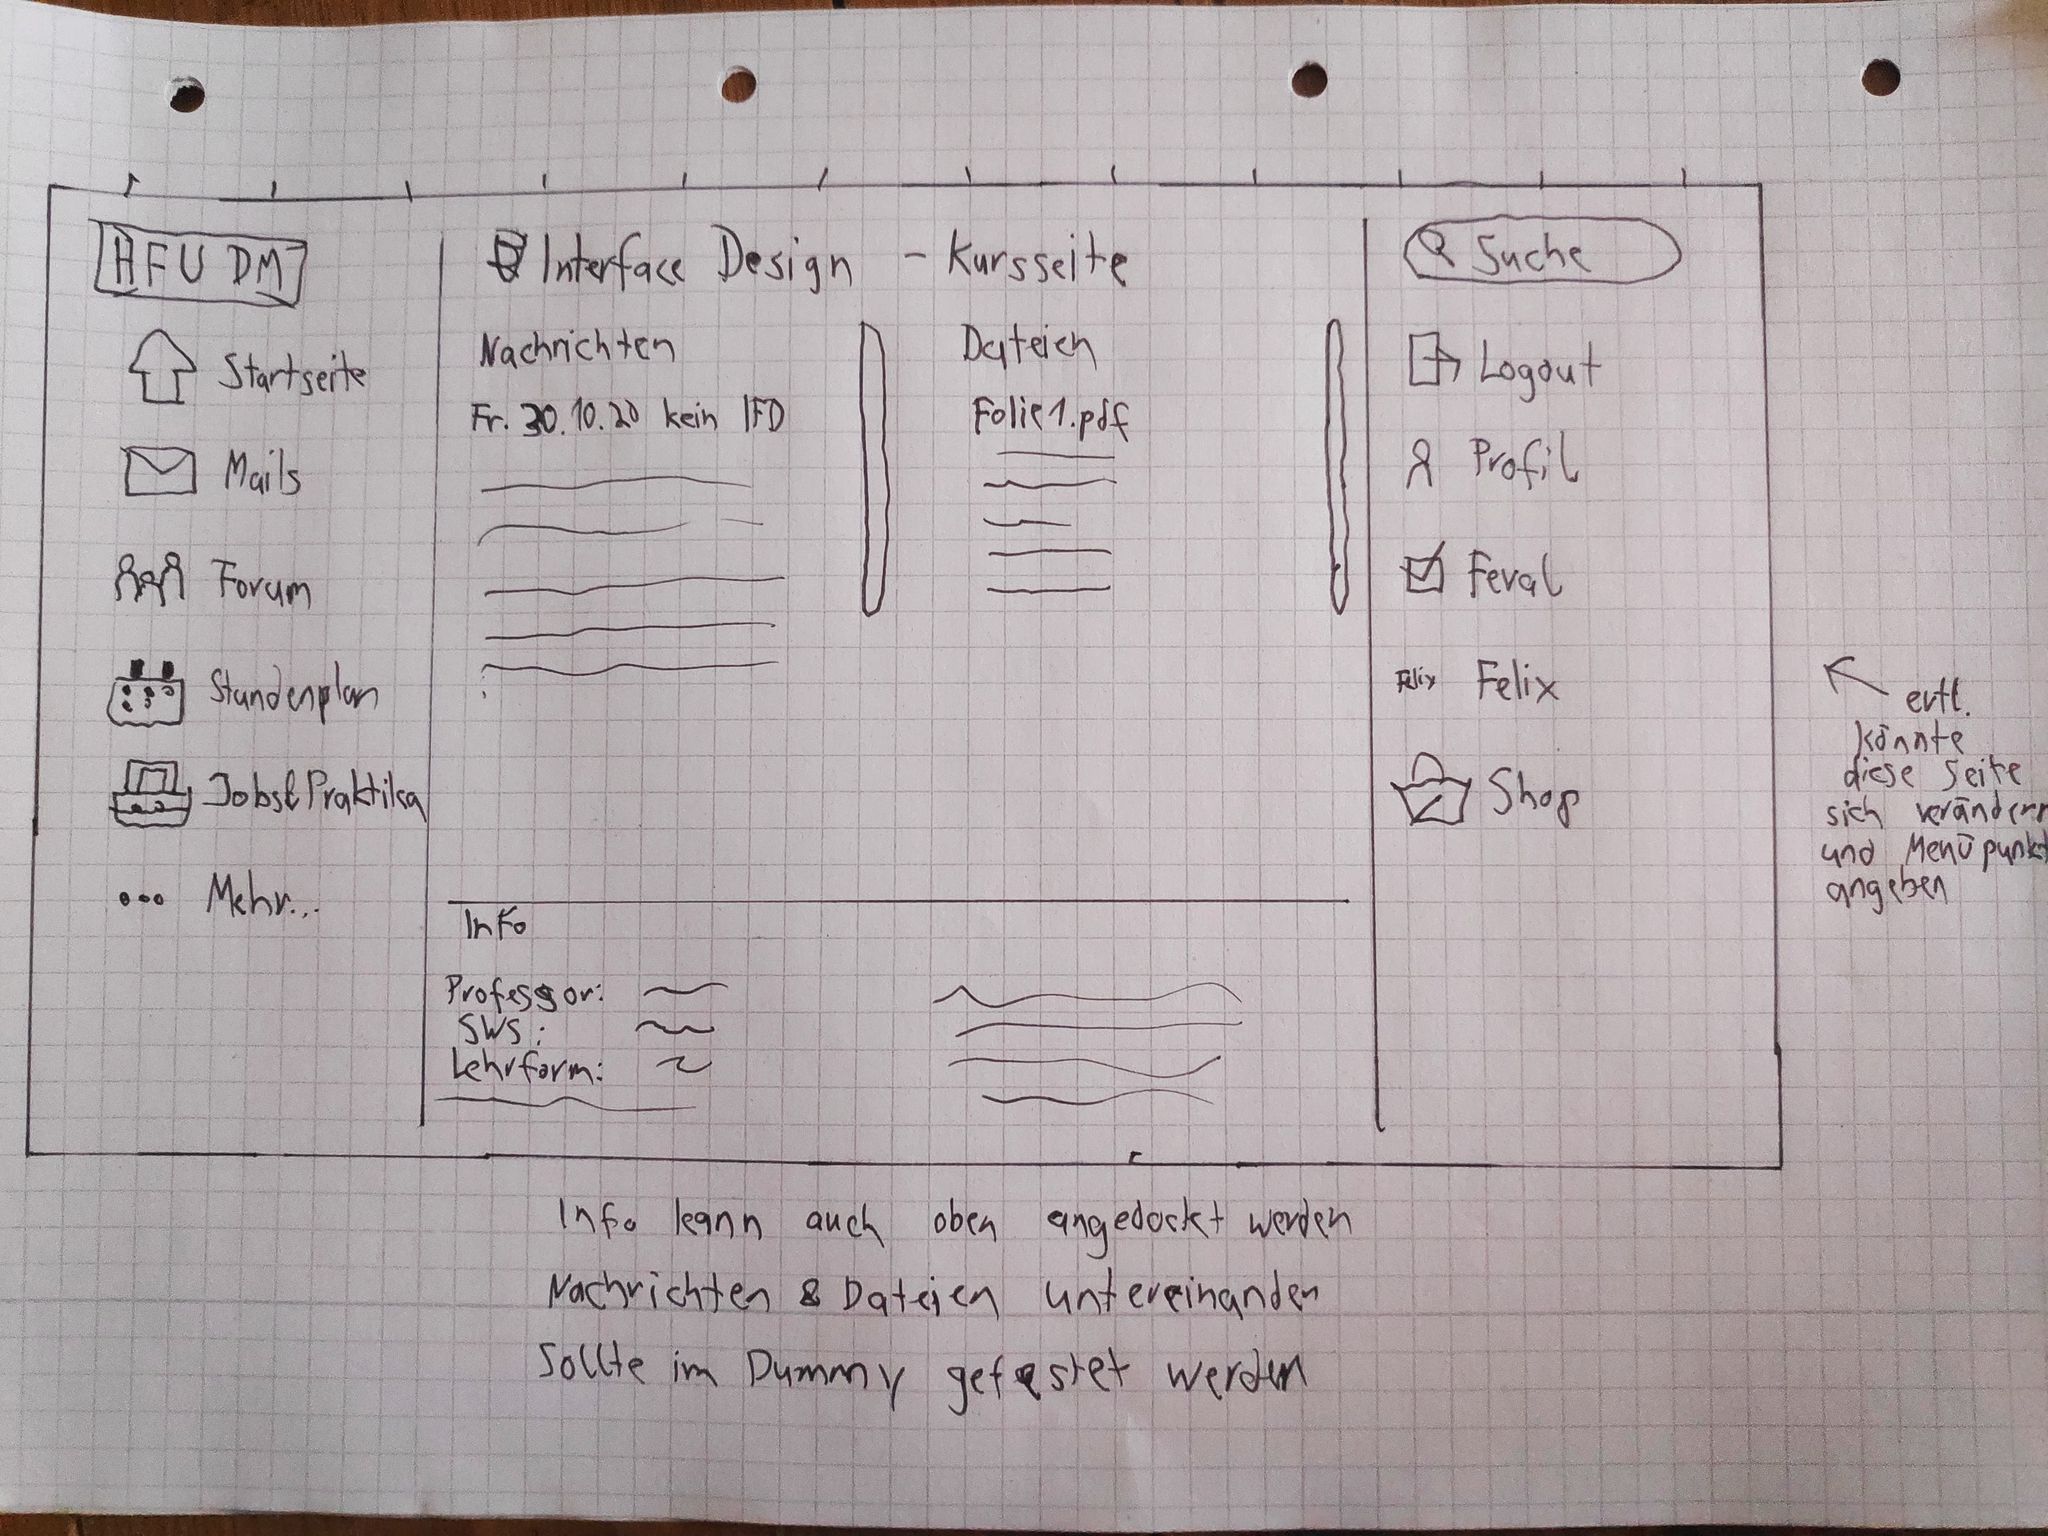 HFU DM
Startseite
Mails
Forum
Stundenplan
Jobs&Praktika
Mehr...
Interface Design - Kursseite
Nachrichten
Fr. 30.10.20 kein IFD
Dateien
Folie1.pdf
Info
Professor:
SWS:
Lehrform:
Suche
Logout
Profil
Feval
Felix Felix
Shop
evtl.
könnte
diese Seite
sich verändern
und Menüpunkt
angeben
Info kann auch oben angedockt werden
Nachrichten & Dateien untereinander
Sollte im Dummy getestet werden